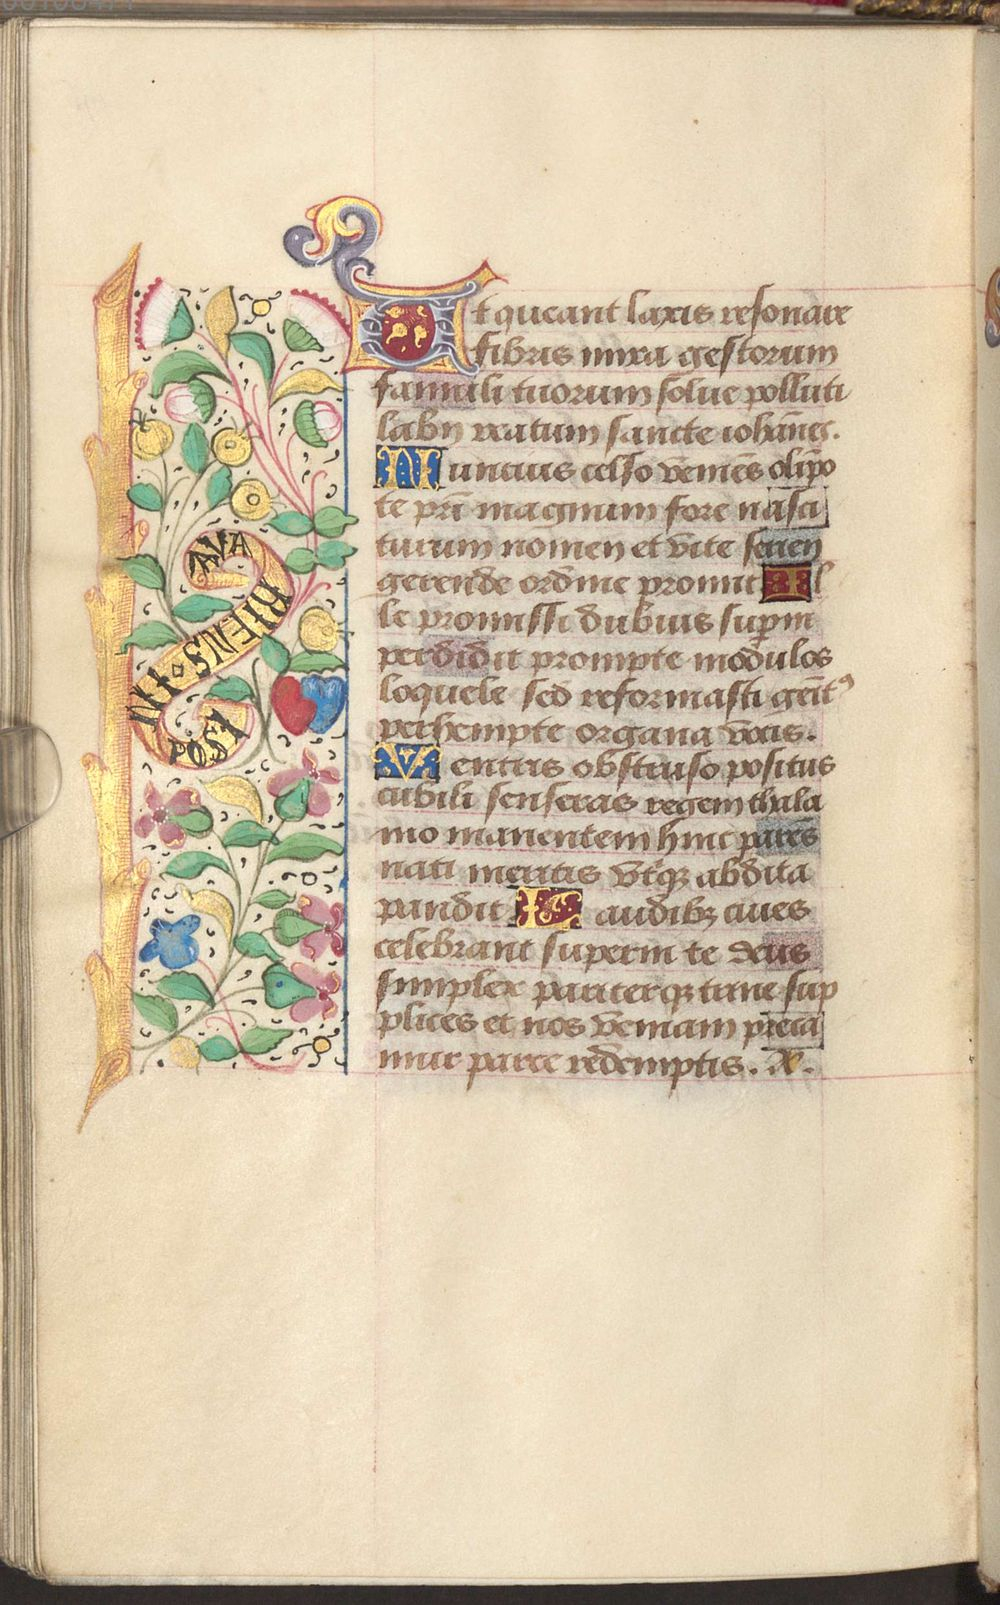 Ut queant laxis resonare
fibris mira gestorum
famuli tuorum solue polluti
labij reatum sancte iohānes.
Nuncius celso veniēs olīpo
te pr̄i magnum fore nasci
turum nomen et vite seriem
gerende ordine promit Il
le promissi dubius superni
perdidit prompte modulos
loquele sed reformasti genit᾽
perhempte organa vocis.
Ventris obstruso positus
cubili senseras regem thala
mo manentem hinc parēs
nati meritis vterqꝫ abdita
pandit Laudibꝫ ciues
celebrant superni te deus
simplex pariterqꝫ trine sup
plices et nos veniam preca
mur parce redemptis. A.
AVA
RIENS